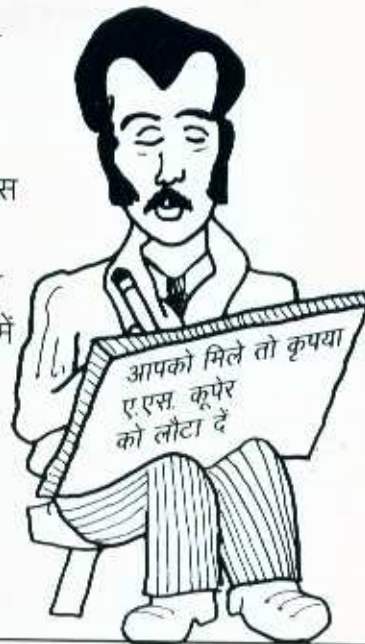 स
में
आपको मिले तो कृपया
ए.एस. कूपेर
को लौटा दें